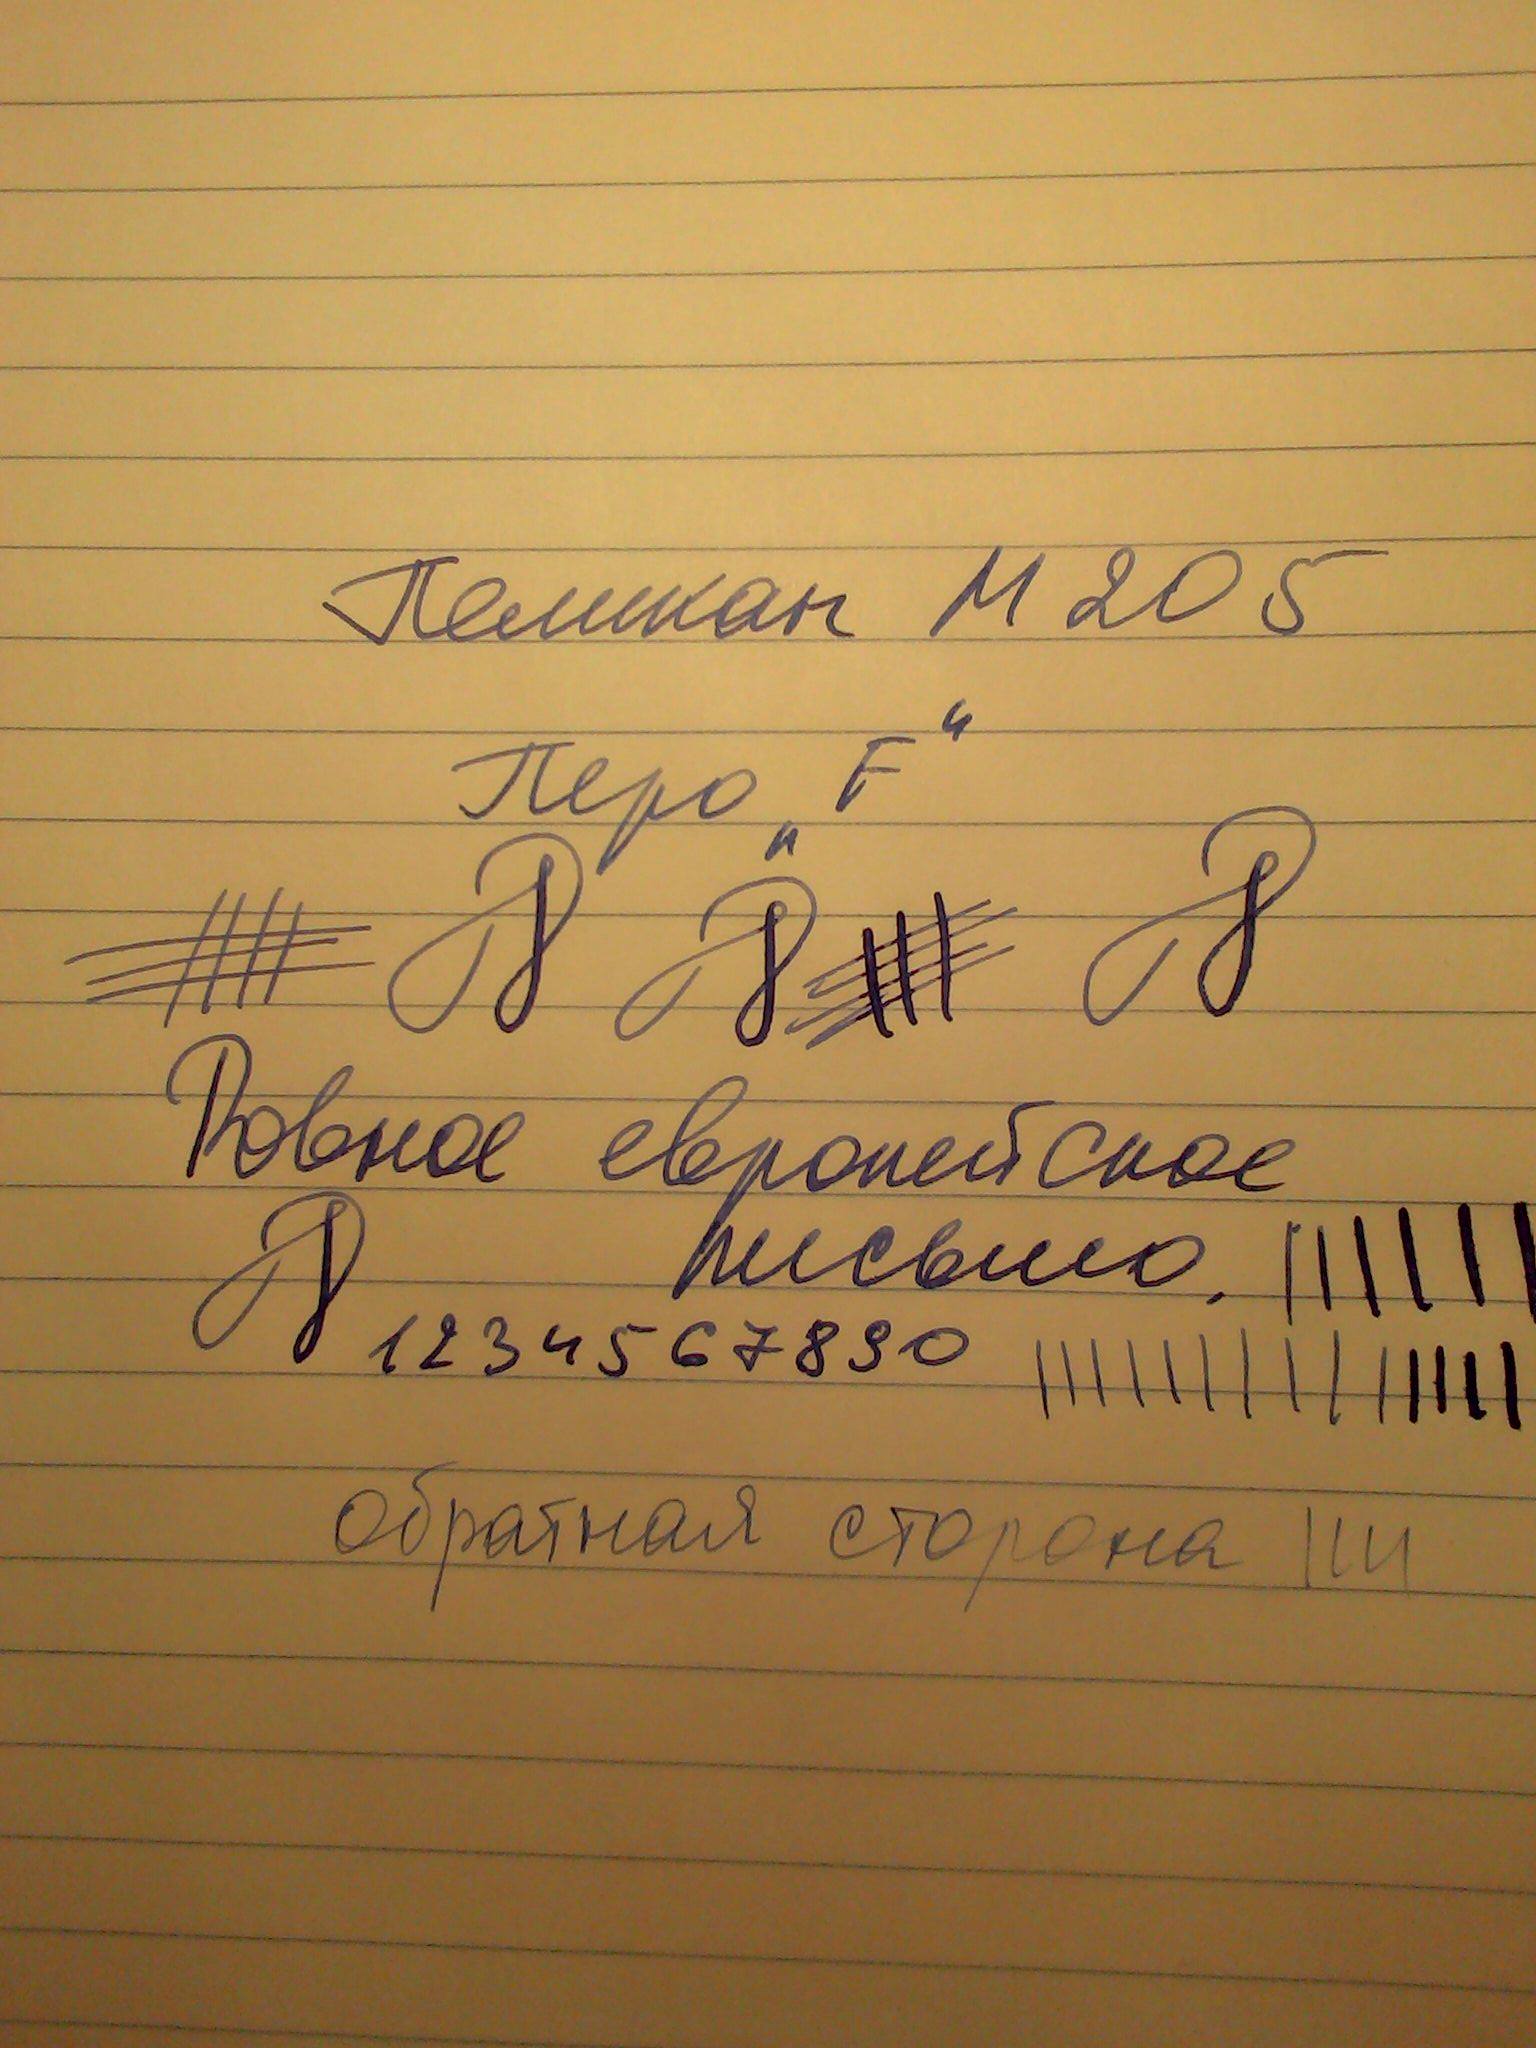 Пеликан М 205
Перо „F“
Р Р Р
Ровное европейское
Р письмо.
1234567890
обратная сторона